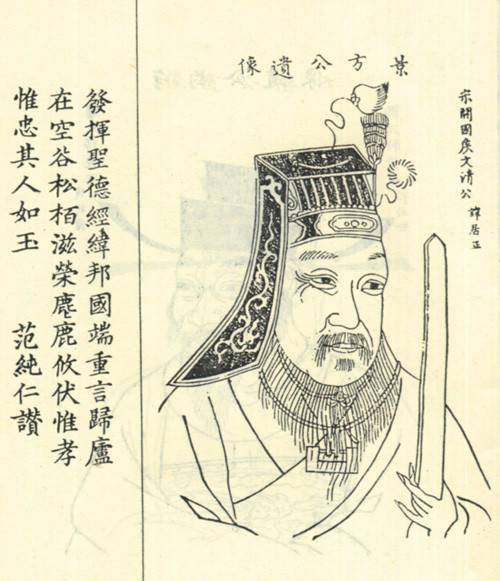 方公遺像
宋開國侯文清公 諱居正
發揮聖德經緯邦國端重言歸廬
在空谷松栢滋榮麀鹿攸伏惟孝
惟忠其人如玉 范純仁讚